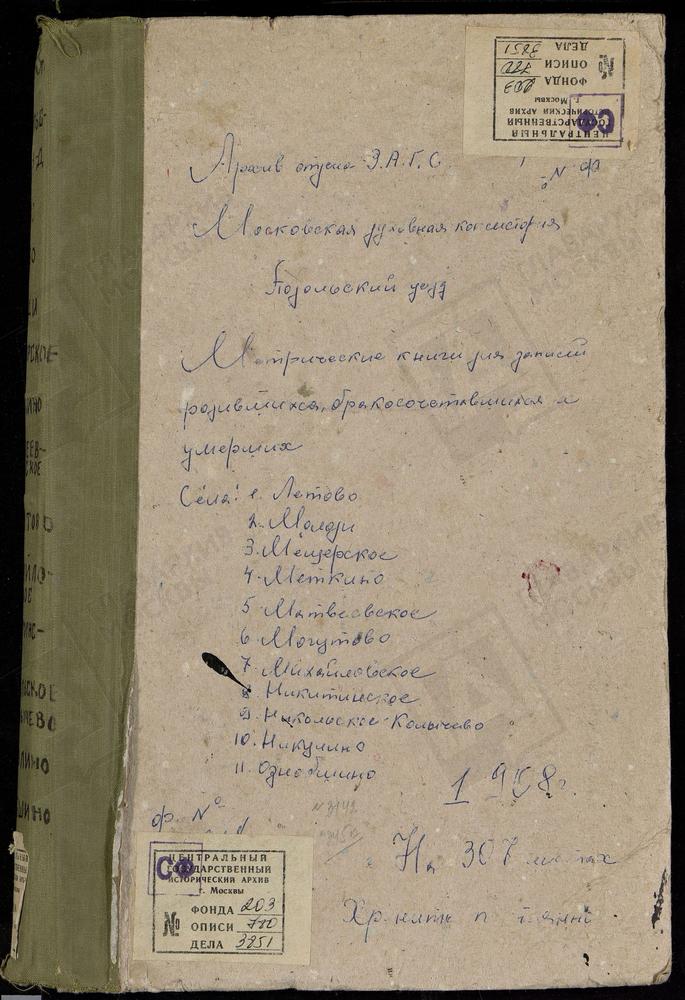 ЦЕНТРАЛЬНЫЙ
ГОСУДАРСТВЕННЫЙ
ИСТОРИЧЕСКИЙ АРХИВ
г. Москвы
№
ФОНДА 203
ОПИСИ 780
ДЕЛА 3851
СФ
Архив отдела З.А.Г.С.
Московская духовная консистория
Подольский уезд
Метрические книги для записи
родившихся, бракосочетавшихся и
умерших
Сёла: 1. Летово
2. Молоди
3. Мещерское
4. Меткино
5. Матвеевское
6. Могутово
7. Михайловское
8. Никитинское
9. Никольское-Колычево
10. Никулино
11. Ознобишино
1908 г.
ф. №
На 307 листах
ЦЕНТРАЛЬНЫЙ
ГОСУДАРСТВЕННЫЙ
ИСТОРИЧЕСКИЙ АРХИВ
г. Москвы
№
ФОНДА 203
ОПИСИ 780
ДЕЛА 3851
СФ